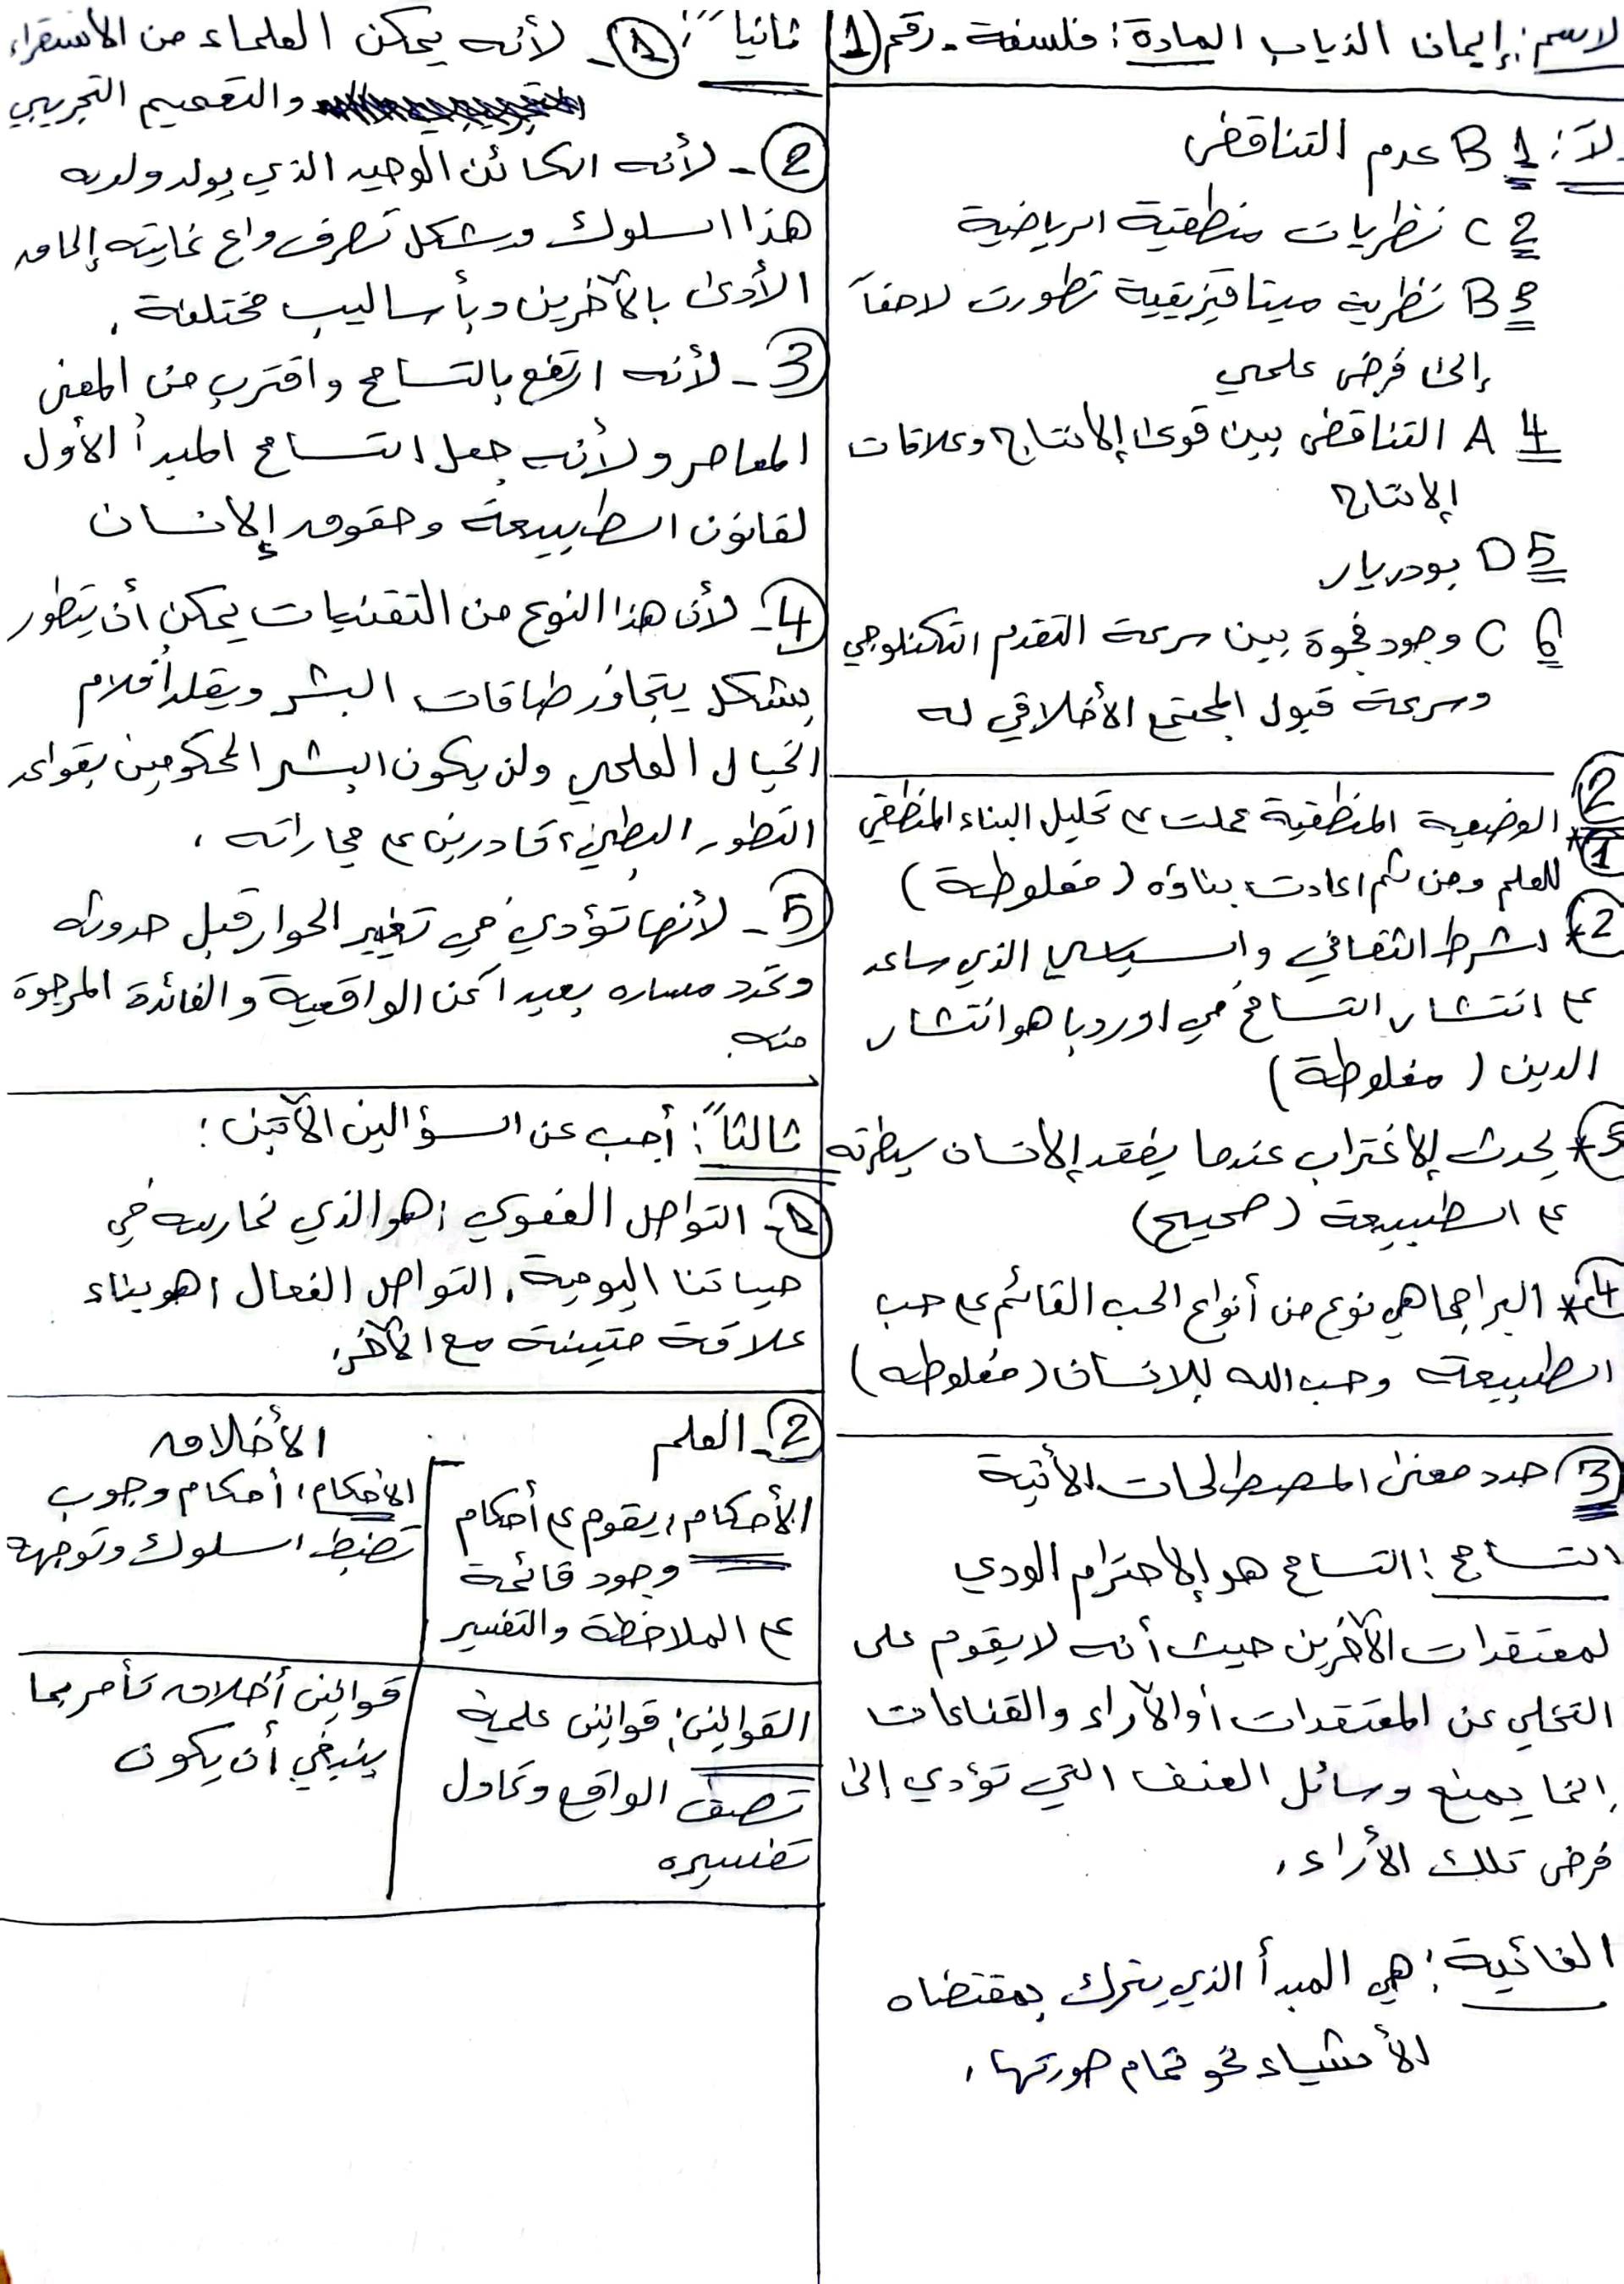 الاسم: إيمان الذياب المادة: فلسفة - رقم (1)
أولاً: 1 B عدم التناقض
2 C نظريات منطقية الرياضية
3 B نظرية ميتافيزيقية تطورت لاحقاً
إلى فرض علمي
4 A التناقض بين قوى الإنتاج وعلاقات
الإنتاج
5 D بودريار
6 C وجود فجوة بين سرعة التقدم التكنلوجي
وسرعة قبول المجتمع الأخلاقي له
2
1* الوضعية المنطقية عملت ع تحليل البناء المنطقي
للعلم ومن ثم اعادت بناؤه (مغلوطة)
2* الشرط الثقافي والسياسي الذي ساعد
ع انتشار التسامح في اوروبا هو انتشار
الدين (مغلوطة)
3* يحدث الاغتراب عندما يفقد الإنسان سيطرته
ع الطبيعة (صحيح)
4* البراجما هي نوع من أنواع الحب القائم ع حب
الطبيعة وحب الله للانسان (مغلوطه)
3 حدد معنى المصطلحات الأتية
التسامح: التسامح هو الإحترام الودي
لمعتقدات الآخرين حيث أنه لا يقوم على
التخلي عن المعتقدات أو الآراء والقناعات
إنما يمنع وسائل العنف التي تؤدي إلى
فرض تلك الأراء.
الغائية: هي المبدأ الذي يتحرك بمقتضاه
الأشياء نحو تمام صورتها.
ثانياً: 1- لأنه يمكن العلماء من الاستقراء
والتعميم التجريبي
2- لأنه الكائن الوحيد الذي يولد ولديه
هذا السلوك ويشكل تصرف واع غايته إلحاق
الأذى بالآخرين وبأساليب مختلفة.
3- لأنه ارتفع بالتسامح واقترب من المعنى
المعاصر ولأنه جعل التسامح المبدأ الأول
لقانون الطبيعة وحقوق الإنسان
4- لأن هذا النوع من التقنيات يمكن أن يتطور
بشكل يتجاوز طاقات البشر ويقلد أفلام
الخيال العلمي ولن يكون البشر المحكومين بقواعد
التطور البطيء قادرين ع مجاراته.
5- لأنها تؤدي في تغيير الحوار قبل حدوثه
وتحدد مساره بعيداً عن الواقعية والفائدة المرجوة
منه.
ثالثاً: أجب عن السؤالين الآتين:
1- التواصل العفوي: هو الذي نمارسه في
حياتنا اليومية. التواصل الفعال: هو بناء
علاقة متينة مع الآخر.
2- العلم
الأخلاق
الأحكام: يقوم ع أحكام
وجود قائمة
ع الملاحظة والتفسير
الأحكام: أحكام وجوب
تضبط السلوك وتوجهه
القوانين: قوانين علمية
تصف الواقع وتحاول
تفسيره
قوانين أخلاق تأمر بما
ينبغي أن يكون